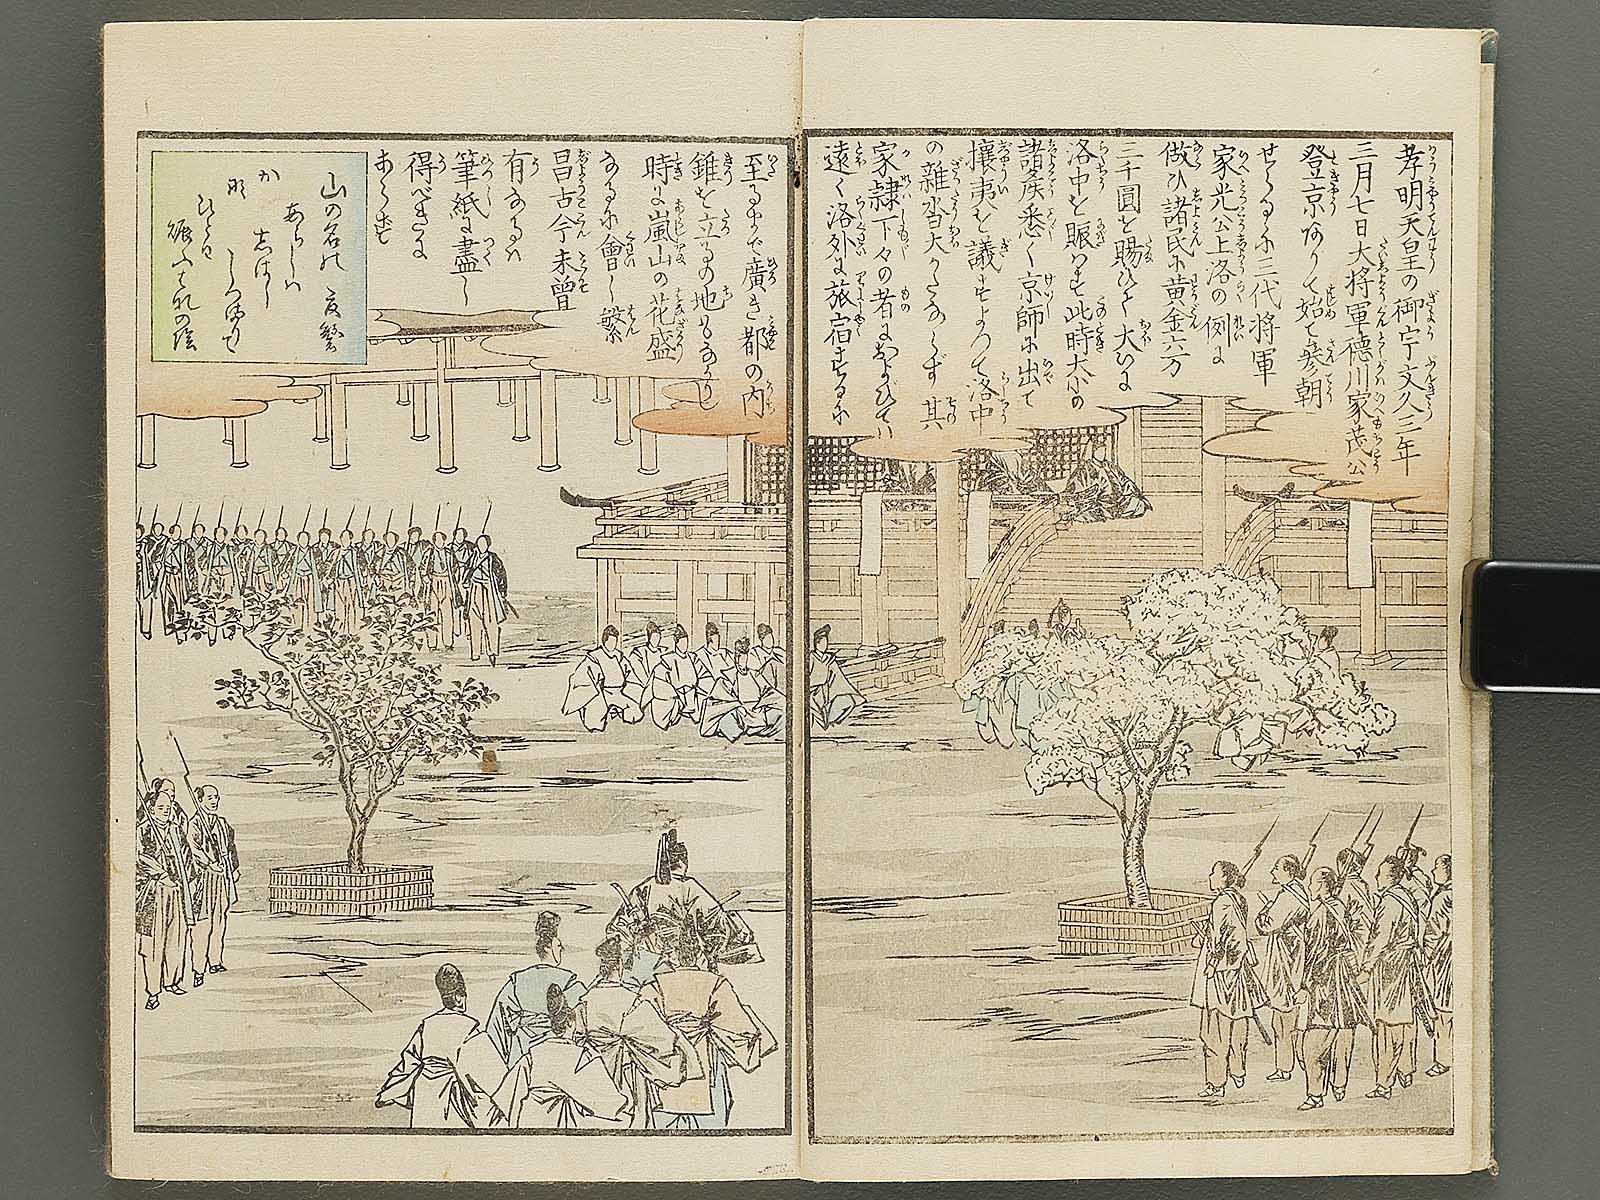 孝明天皇の御宇文久三年
三月七日大将軍徳川家茂公
登京ありて始て参朝
せらるゝに三代将軍
家光公上洛の例に
做ひ諸民に黄金六万
三千圓を賜ひて大いに
洛中を賑はす此時大小の
諸矦悉く京師に出て
攘夷を議すよつて洛中
の雑沓大かたならず其
家隷下々の者におよびてハ
遠く洛外に旅宿するに
至るまで廣き都の内
錐を立るの地もなかりし
時に嵐山の花盛
なるに會し繁
昌古今未曽
有なるハ
筆紙に盡し
得べきに
あらず
山の名の
あらしハ